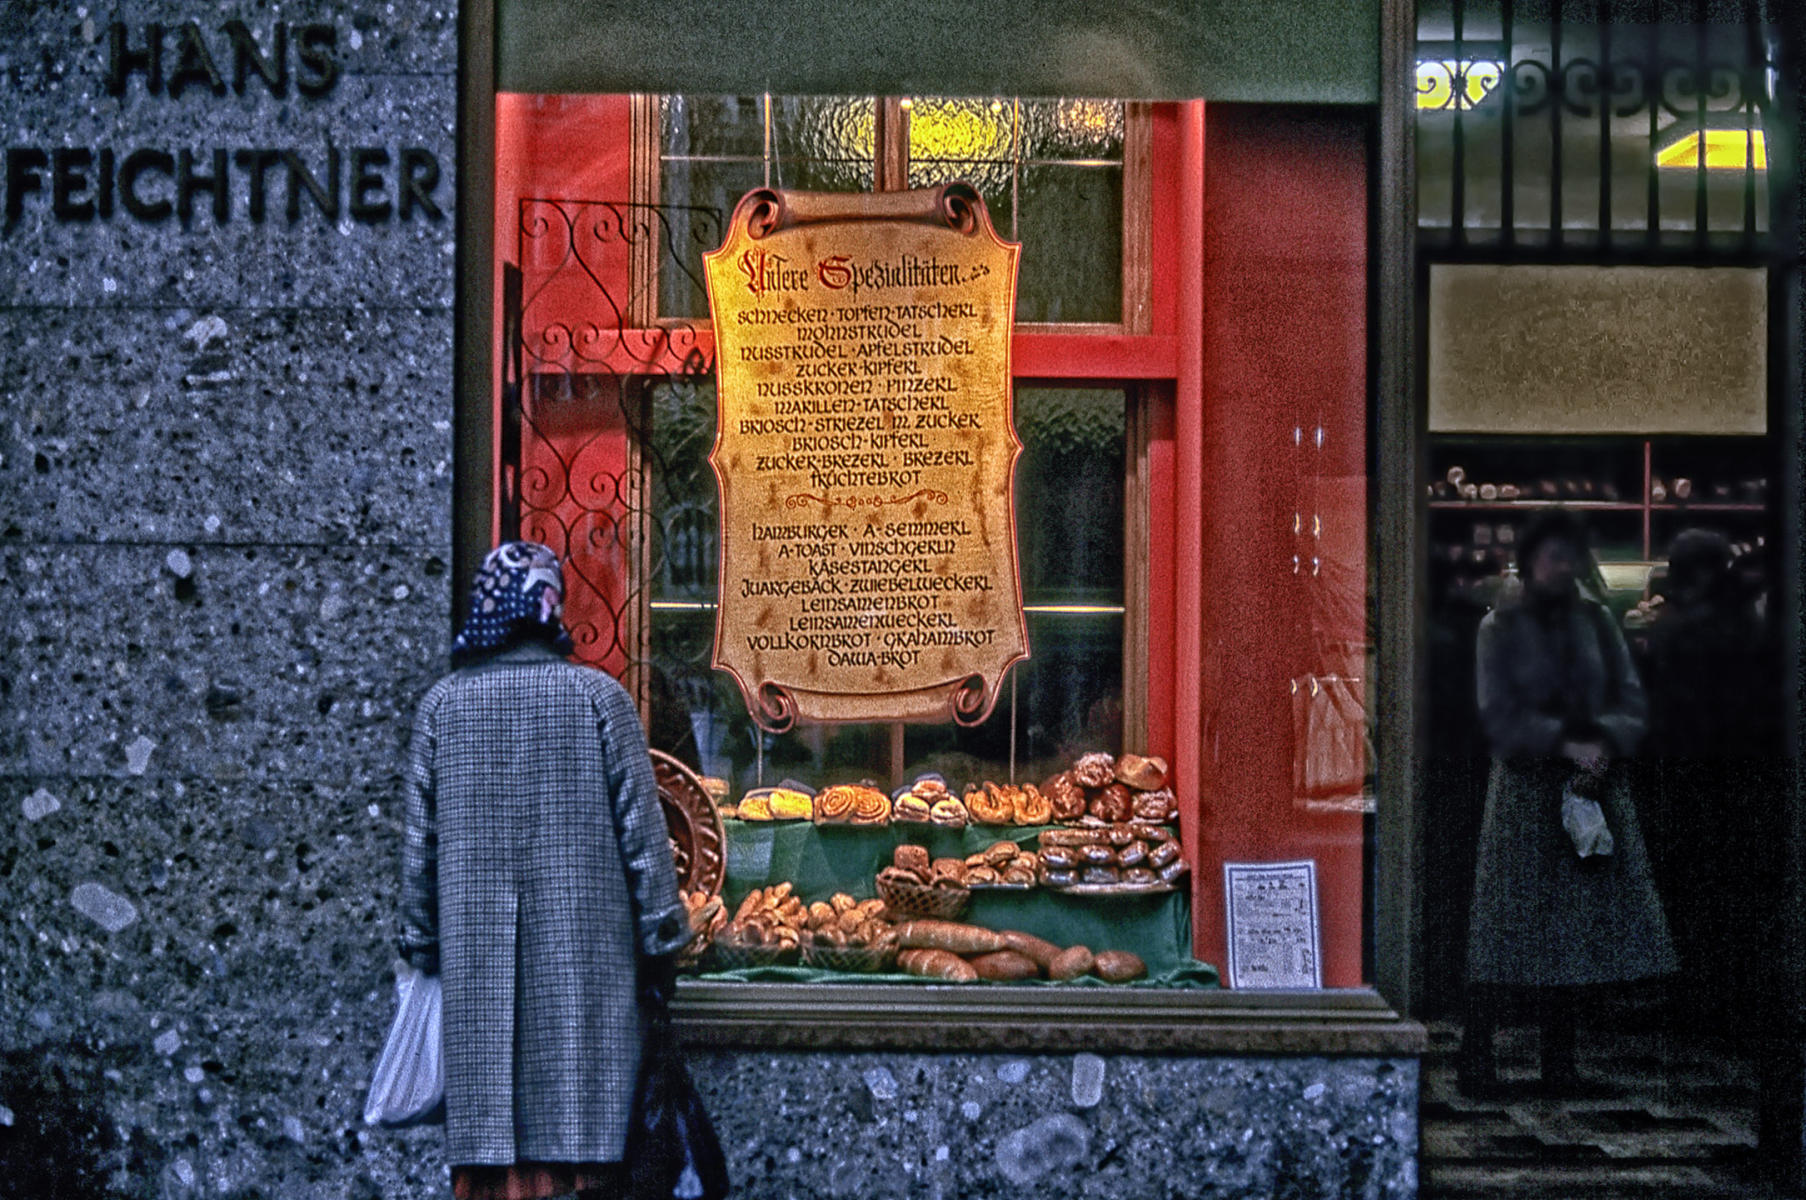 HANS
FEICHTNER
Unsere Spezialitäten...
SCHNECKEN · TOPFEN-TATSCHERL
MOHNSTRUDEL
NUSSTRUDEL · APFELSTRUDEL
ZUCKER-KIPFERL
NUSSKRONEN · PINZERL
MARILLEN-TATSCHERL
BRIOSCH-STRIEZEL M. ZUCKER
BRIOSCH-KIPFERL
ZUCKER-BREZERL · BREZERL
FRÜCHTEBROT
HAMBURGER · A-SEMMERL
A-TOAST · VINSCHGERLN
KÄSESTANGERL
JUARGEBÄCK · ZWIEBELWECKERL
LEINSAMENBROT
LEINSAMENWECKERL
VOLLKORNBROT · GRAHAMBROT
DAWA-BROT